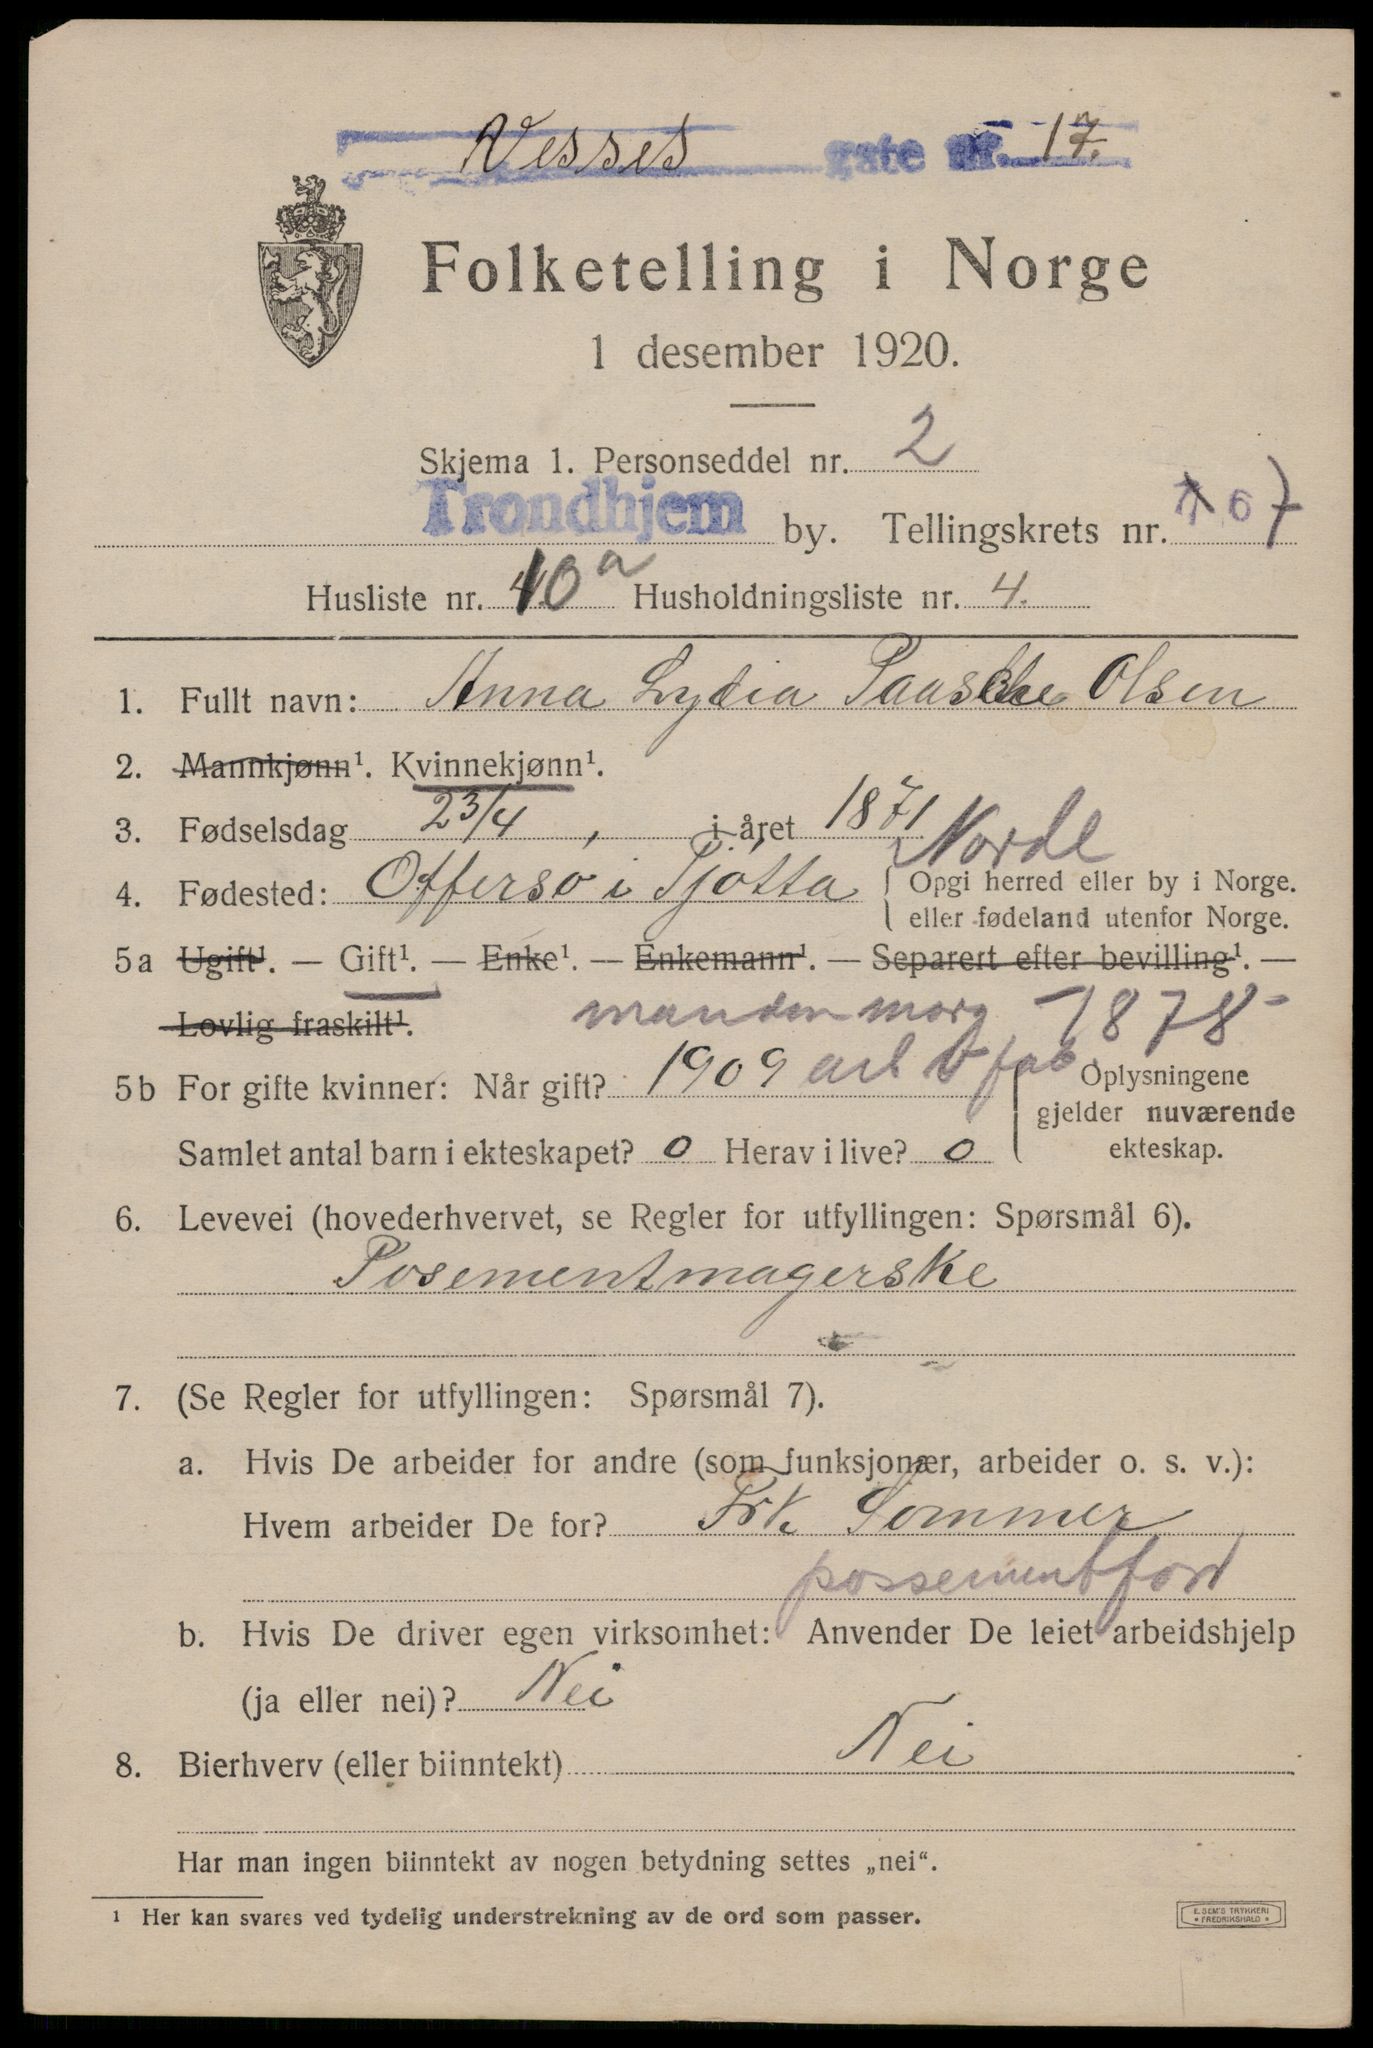 Wesses gate nr. 17.
Folketelling i Norge
1 desember 1920.
Skjema 1. Personseddel nr. 2
Trondhjem by. Tellingskrets nr. 07
Husliste nr. 10a Husholdningsliste nr. 4.
1. Fullt navn: Anna Lydia Paasche Olsen
2. Mannkjønn¹. Kvinnekjønn¹.
3. Fødselsdag 23/4, i året 1871
Nordl
4. Fødested: Offersø i Tjøtta { Opgi herred eller by i Norge.
eller fødeland utenfor Norge.
5a Ugift¹. — Gift¹. — Enke¹. — Enkemann¹. — Separert efter bevilling¹. —
Lovlig fraskilt¹. manden - 1878 -
5b For gifte kvinner: Når gift? 1909 Oplysningene
gjelder nuværende
Samlet antal barn i ekteskapet? 0 Herav i live? 0 ekteskap.
6. Levevei (hovederhvervet, se Regler for utfyllingen: Spørsmål 6).
Posementmagerske
7. (Se Regler for utfyllingen: Spørsmål 7).
a. Hvis De arbeider for andre (som funksjonær, arbeider o. s. v.):
Hvem arbeider De for? Frk. Sommer
possement
b. Hvis De driver egen virksomhet: Anvender De leiet arbeidshjelp
(ja eller nei)? Nei
8. Bierhverv (eller biinntekt) Nei
Har man ingen biinntekt av nogen betydning settes „nei“.
¹ Her kan svares ved tydelig understrekning av de ord som passer.
E. SEM'S TRYKKERI
* FREDRIKSHALD *